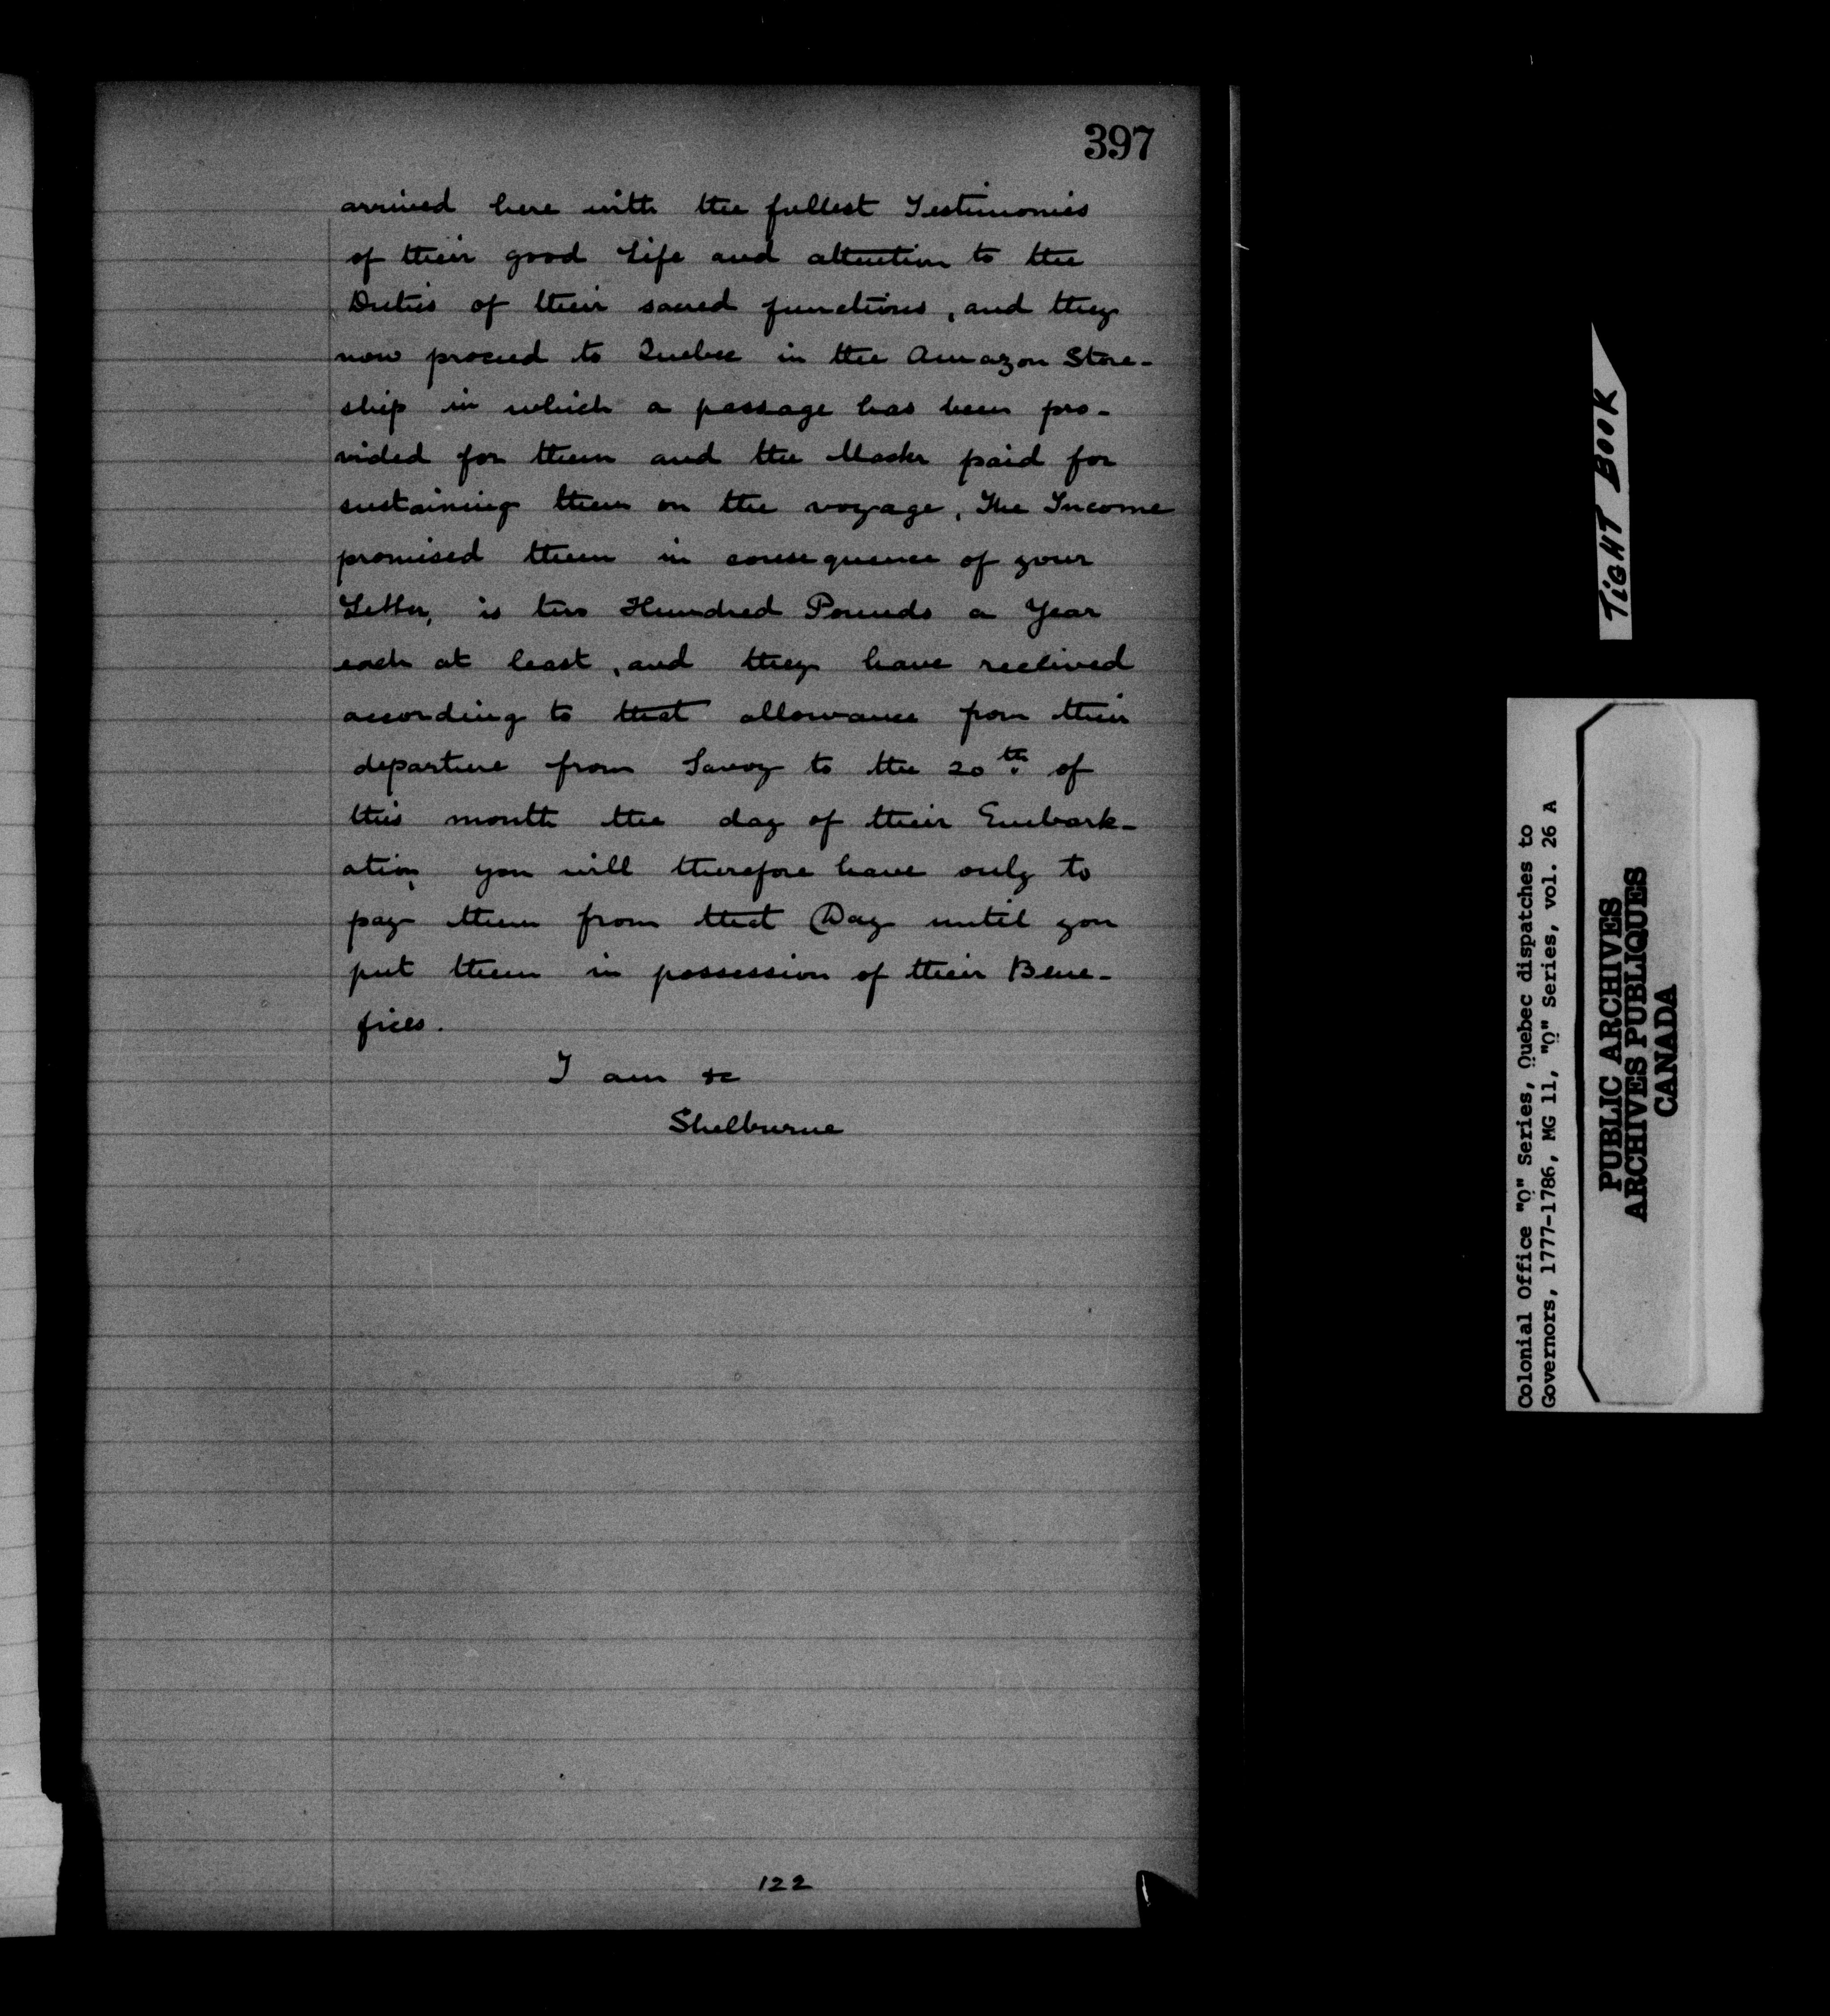 397
arrived here with the fullest Testimonies
of their good Life and attention to the
Duties of their sacred functions, and they
now proceed to Quebec in the Amazon Store-
ship in which a passage has been pro-
vided for them and the Master paid for
sustaining them on the voyage. The Income
promised them in consequence of your
Letter, is two Hundred Pounds a Year
each at least, and they have received
according to that allowance from their
departure from Savoy to the 20th of
this month the day of their Embark-
ation, you will therefore have only to
pay them from that Day until you
put them in possession of their Bene-
fices.
I am &c
Shelburne
122
TIGHT BOOK
Colonial Office "Q" Series, Quebec dispatches to
Governors, 1777-1786, MG 11, "Q" Series, vol. 26 A
PUBLIC ARCHIVES
ARCHIVES PUBLIQUES
CANADA